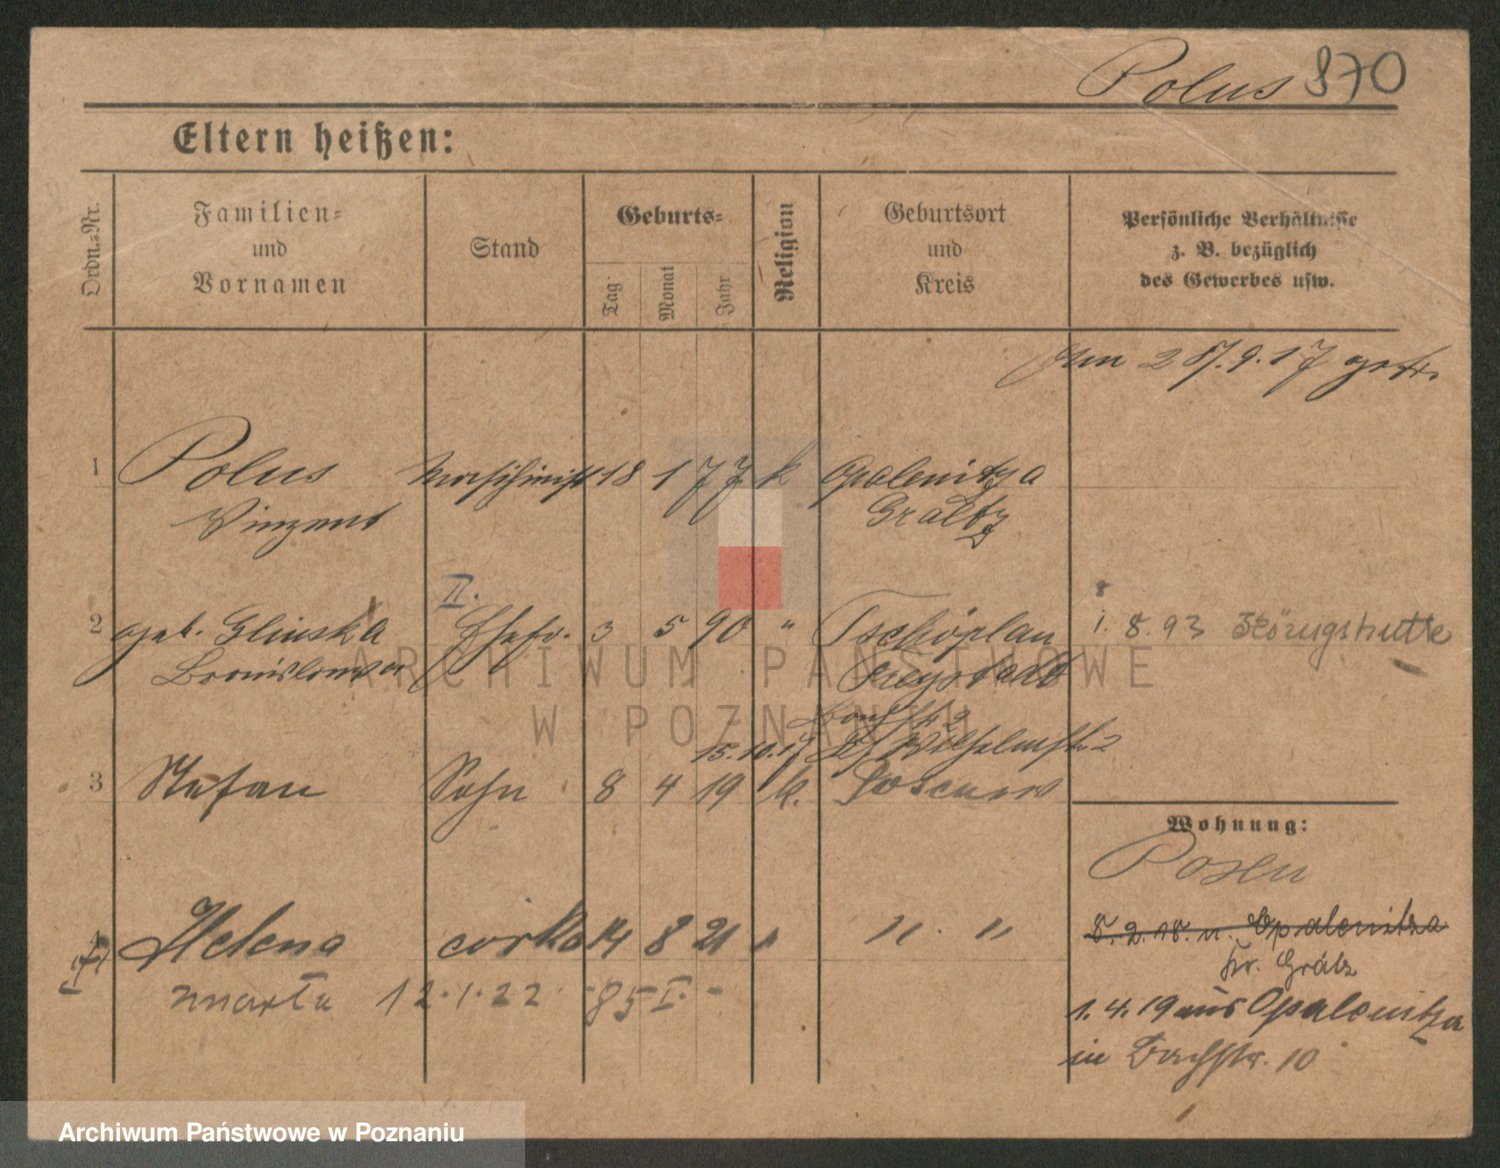 Polus 870
Eltern heißen:
Ordn.-Nr.
Familien- und Vornamen
Stand
Geburts-
Tag
Monat
Jahr
Religion
Geburtsort und Kreis
Persönliche Verhältnisse
z. B. bezüglich
des Gewerbes usw.
1 Polus Maschinist 18 1 77 k Opalenitza
Vinzent Grätz
II.
2 geb. Glinska Ehefr. 3 5 90 " Tschöplau 1. 8. 93
Bronislawa Freystadt
15.10.17 Wilhelmstr. 2
3 Stefan Sohn 8 4 19 k.
Wohnung:
Posen
4 Helena corka 14 8 21 " " "
8. 2. 18. n. Opalenitza
Kr. Grätz
marta 12.1.22
1. 4. 19 aus Opalenitza
in Bachstr. 10
ARCHIWUM PAŃSTWOWE
W POZNANIU
Archiwum Państwowe w Poznaniu